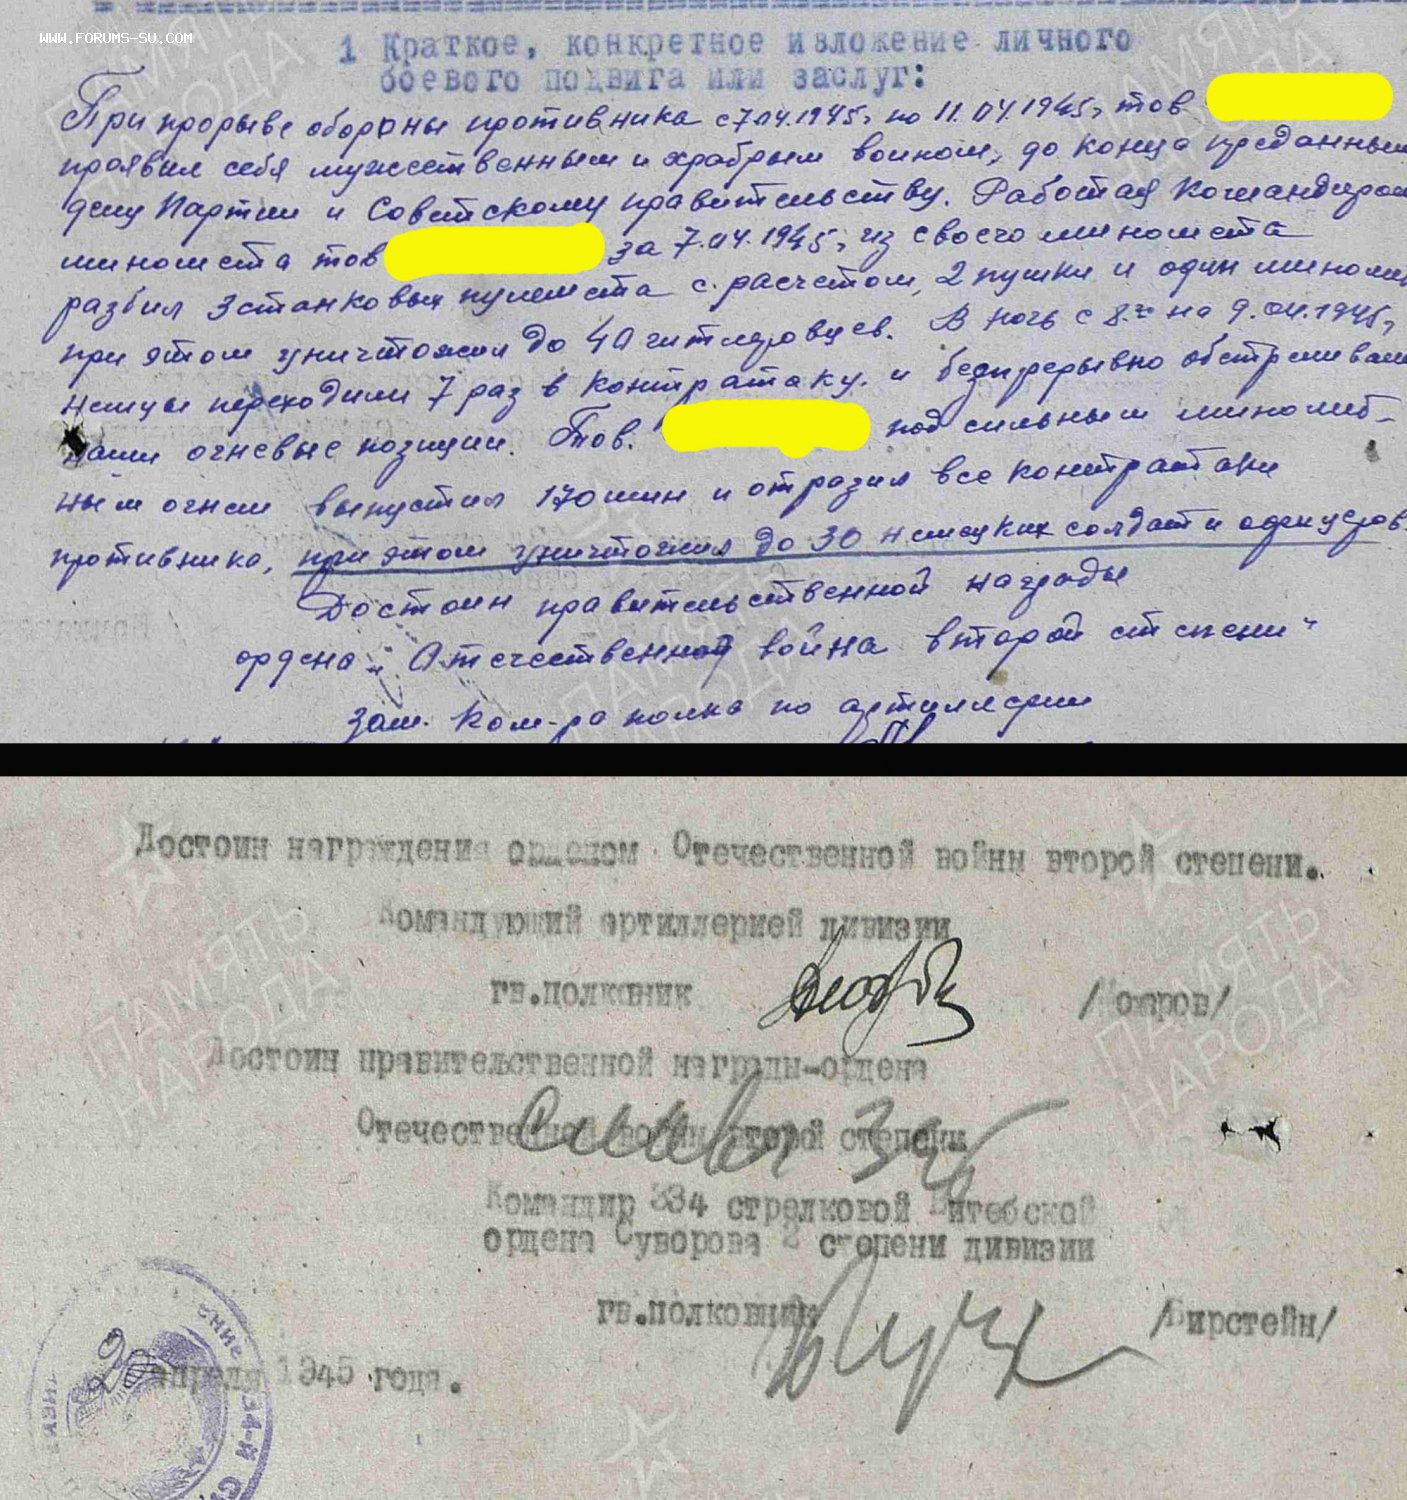 WWW.FORUMS-SU.COM
1 Краткое, конкретное изложение личного
боевого подвига или заслуг:
При прорыве обороны противника с 7.04.1945г по 11.04.1945г тов
проявил себя мужественным и храбрым воином, до конца преданным
делу Партии и Советскому правительству. Работая Командиром
миномета тов за 7.04.1945г из своего миномета
разбил 3 станковых пулемета с расчетом, 2 пушки и один миномет
при этом уничтожил до 40 гитлеровцев. В ночь с 8.4 на 9.04.1945г
немцы переходили 7 раз в контратаку и беспрерывно обстреливали
наши огневые позиции. Тов. под сильным миномет-
ным огнем выпустил 170 мин и отразил все контратаки
противника, при этом уничтожил до 30 немецких солдат и офицеров.
Достоин правительственной награды
ордена „Отечественной война второй степени"
Зам. Ком-ра полка по артиллерии
Достоин награждения орденом Отечественной войны второй степени.
Командующий артиллерией дивизии
гв.полковник
Достоин правительственной награды-ордена
Отечественной войны второй степени
Командир 334 стрелковой Витебской
ордена Суворова 2 степени дивизии
гв.полковник /Бирстейн/
апреля 1945 года.
ПАМЯТЬ
НАРОДА